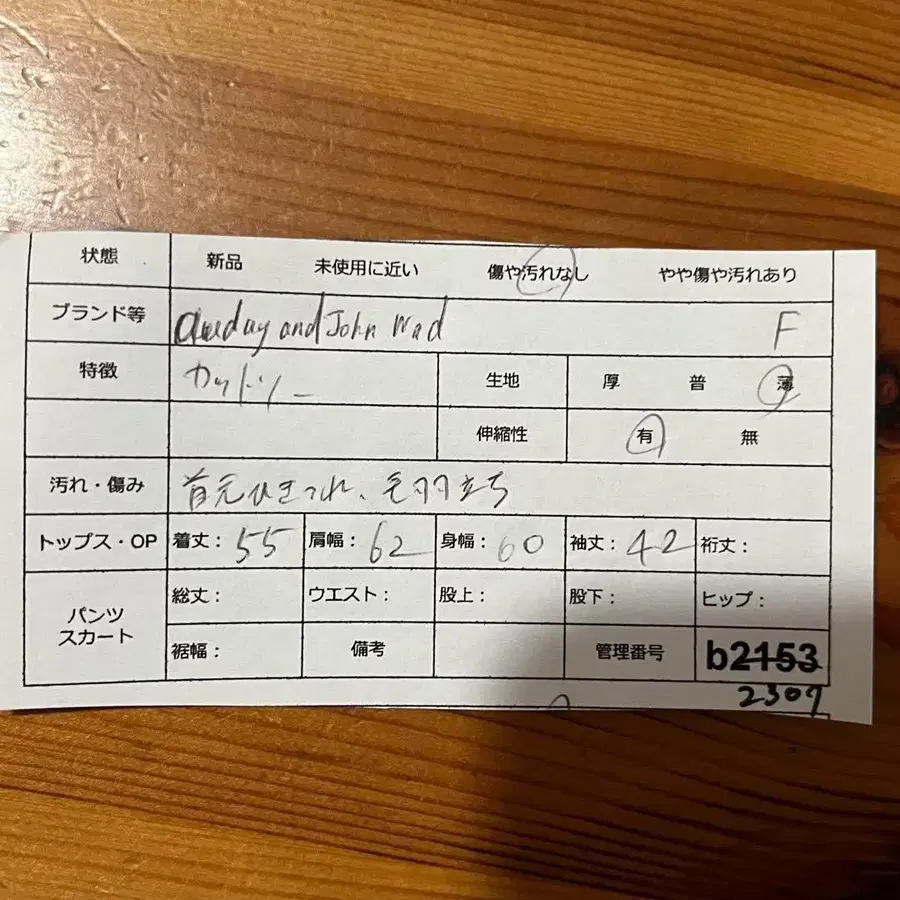 状態 新品 未使用に近い 傷や汚れなし やや傷や汚れあり
ブランド等 auday and John Wad F
特徴 カットソー 生地 厚 普 薄
伸縮性 有 無
汚れ・傷み 首元ひきつれ、毛羽立ち
トップス・OP 着丈：55 肩幅：62 身幅：60 袖丈：42 裄丈：
パンツ スカート 総丈： ウエスト： 股上： 股下： ヒップ：
裾幅： 備考 管理番号 b2153
2307